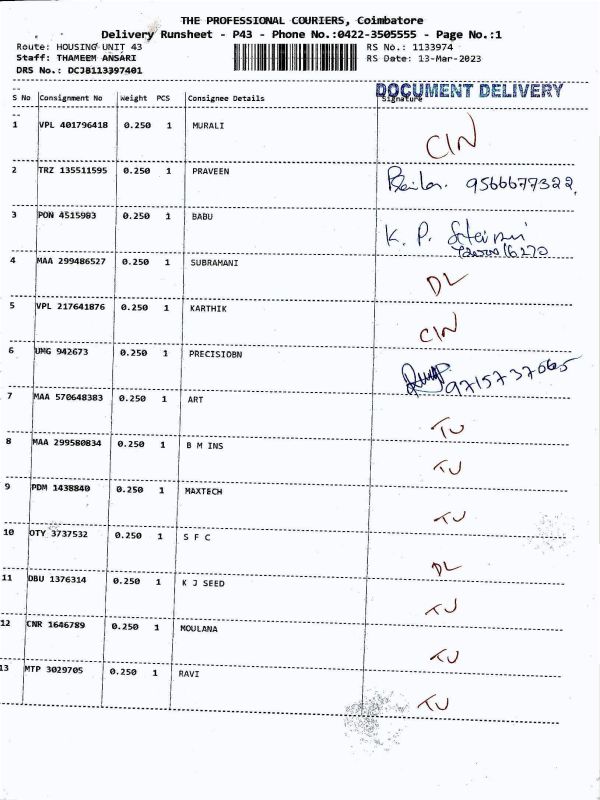 THE PROFESSIONAL COURIERS, Coimbatore
Delivery Runsheet - P43 - Phone No.:0422-3505555 - Page No.:1
Route: HOUSING UNIT 43 RS No.: 1133974
Staff: THAMEEM ANSARI RS Date: 13-Mar-2023
DRS No.: DCJB113397401
DOCUMENT DELIVERY
S No Consignment No Weight PCS Consignee Details Signature
1 VPL 401796418 0.250 1 MURALI CIN
2 TRZ 135511595 0.250 1 PRAVEEN 9566677322
3 PON 4515983 0.250 1 BABU K. P.
4 MAA 299486527 0.250 1 SUBRAMANI DL
5 VPL 217641876 0.250 1 KARTHIK CIN
6 UMG 942673 0.250 1 PRECISIOBN 9715737065
7 MAA 570648383 0.250 1 ART TU
8 MAA 299580834 0.250 1 B M INS TU
9 PDM 1438840 0.250 1 MAXTECH TU
10 OTY 3737532 0.250 1 S F C DL
11 DBU 1376314 0.250 1 K J SEED TU
12 CNR 1646789 0.250 1 MOULANA TU
13 MTP 3029705 0.250 1 RAVI TU